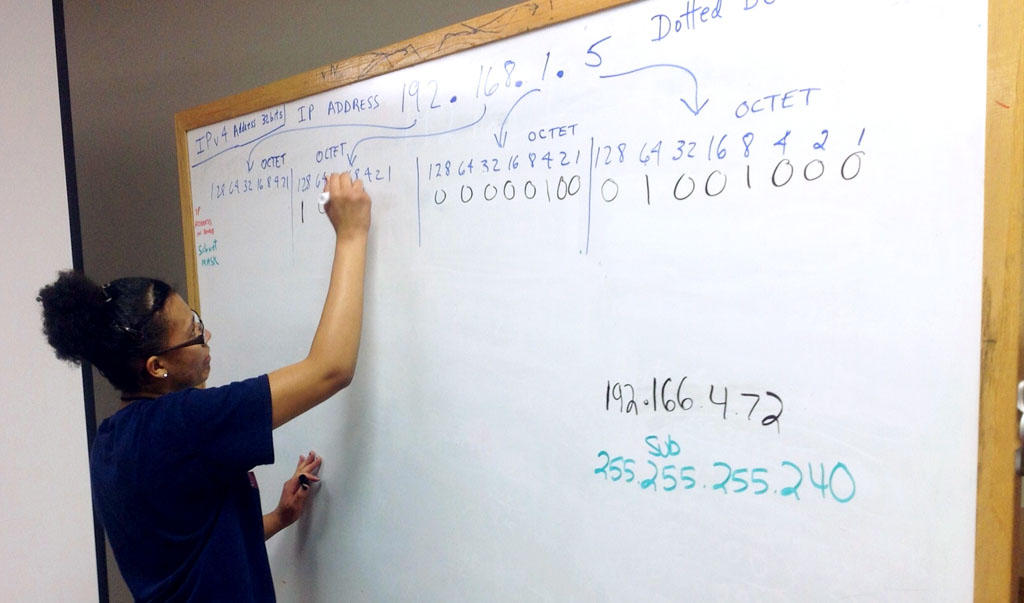 Dotted
IPv4 Address 32bits
IP ADDRESS 192.168.1.5
OCTET
OCTET
OCTET
OCTET
128 64 32 16 8 4 2 1
128 64 8 4 2 1
128 64 32 16 8 4 2 1
128 64 32 16 8 4 2 1
1
0 0 0 0 0 1 0 0
0 1 0 0 1 0 0 0
IP
Subnet
MASK
192.166.4.72
Sub
255.255.255.240